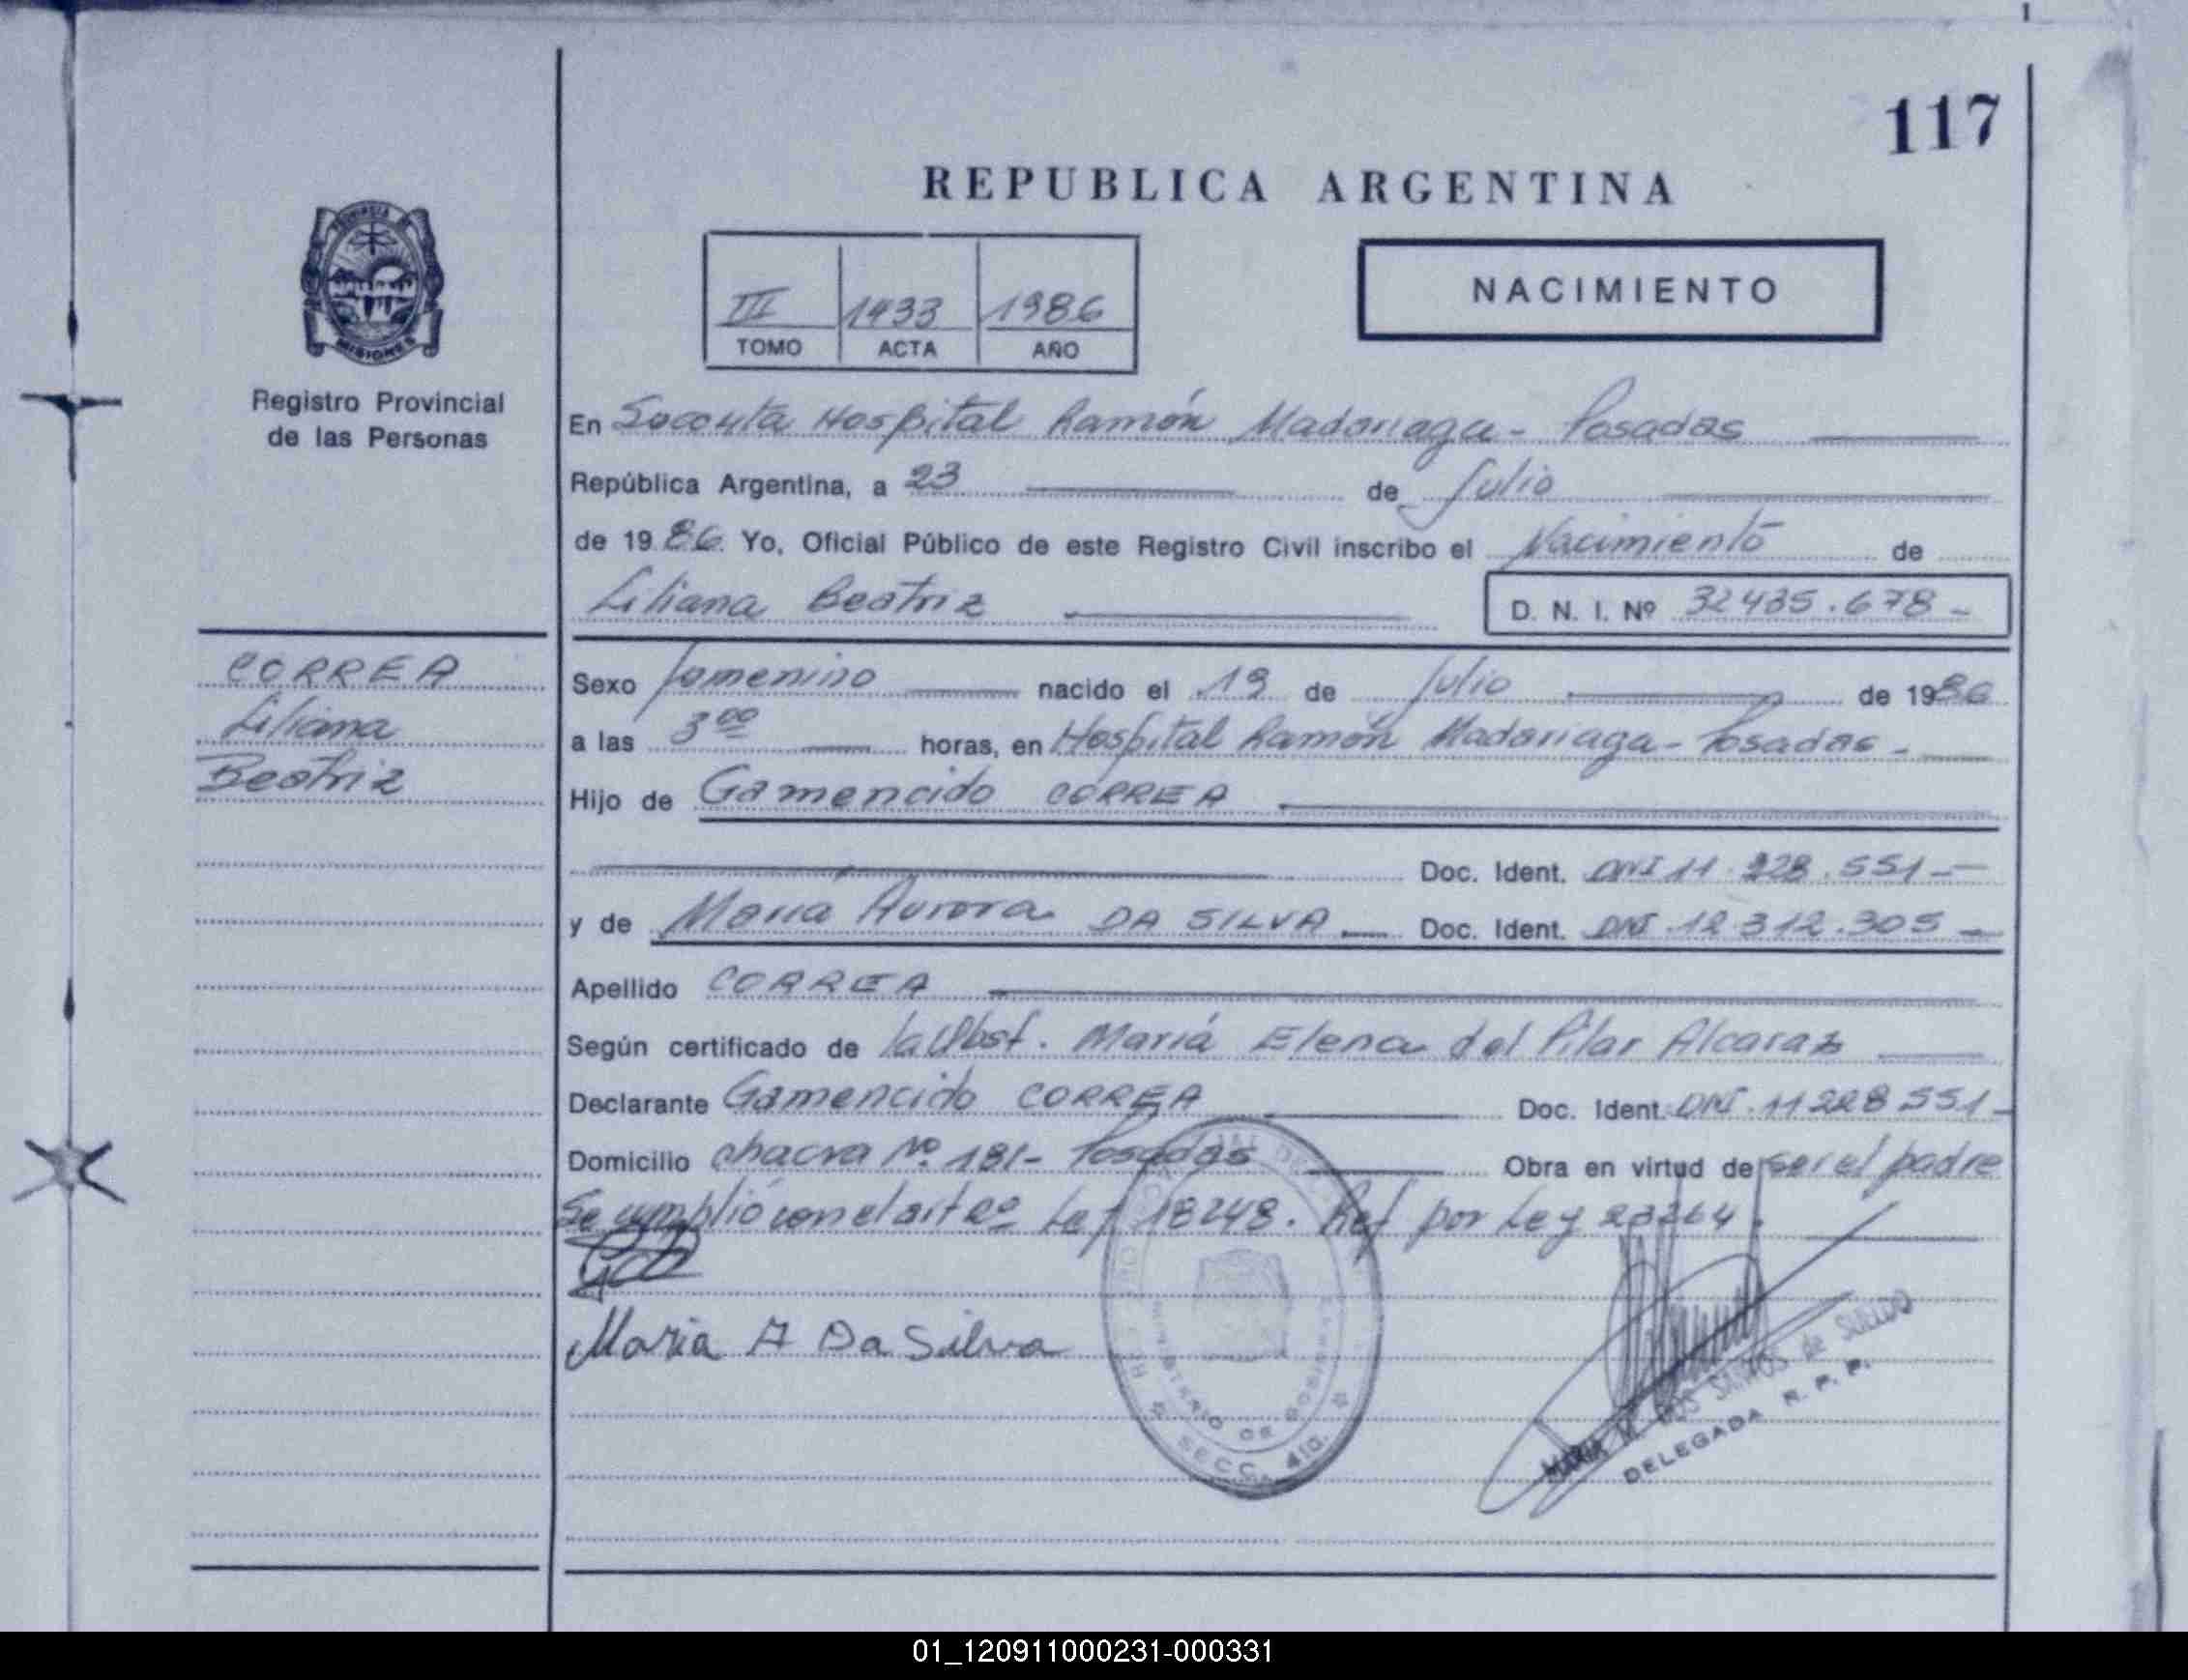 117
REPUBLICA ARGENTINA
PROVINCIA DE
MISIONES
Registro Provincial
de las Personas
III 1433 1986
TOMO ACTA AÑO
NACIMIENTO
En Hospital Ramón Madariaga - Posadas
República Argentina, a 23 de Julio
de 1986 Yo, Oficial Público de este Registro Civil inscribo el Nacimiento de
Liliana Beatriz D. N. I. Nº 32435.678 -
CORREA
Liliana
Beatriz
Sexo femenino nacido el 19 de Julio de 1986
a las 3 00 horas, en Hospital Ramón Madariaga - Posadas -
Hijo de Gamencido CORREA
Doc. Ident. DNI 11.228.551 -
y de María Aurora DA SILVA Doc. Ident. DNI 12.312.305 -
Apellido CORREA
Según certificado de la Obst. María Elena del Pilar Alcaraz
Declarante Gamencido CORREA Doc. Ident. DNI. 11228551 -
Domicilio chacra Nº 181 - Posadas Obra en virtud de ser el padre
Se cumplió con el art 2º Ley 18248. Ref por Ley 23264.
Maria A Da Silva
MINISTERIO DE GOBIERNO
SECC. 4ta.
MARIA M. DOS SANTOS de SUELDO
DELEGADA R. P. P.
01_120911000231-000331